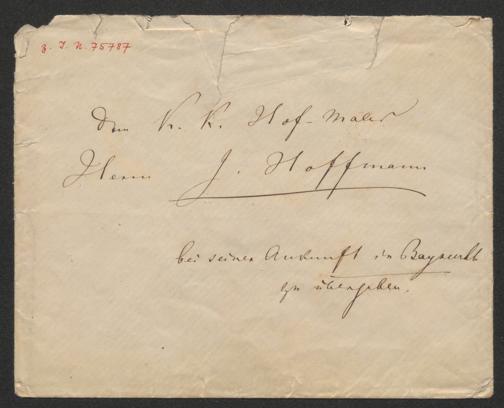 z. I. N. 75787
Dem K. K. Hof-Maler
Herrn J. Hoffmann
bei seiner Ankunft in Bayreuth
zu übergeben.